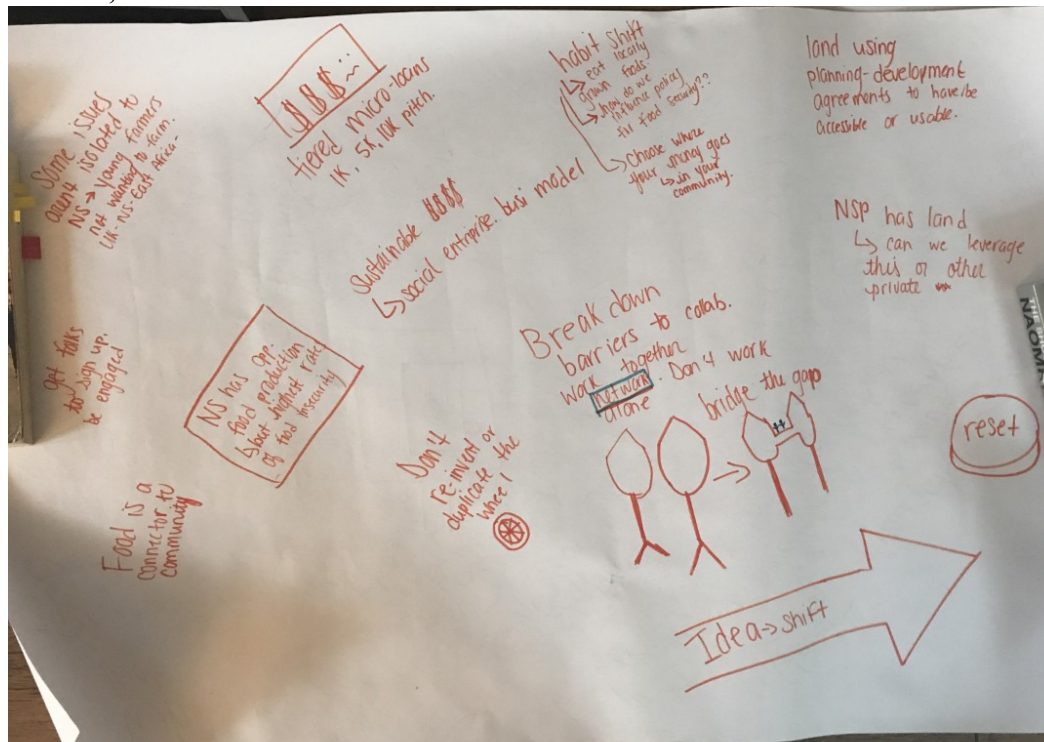 Some issues
aren't isolated to
NS → young farmers
not wanting to farm.
UK-NS-East Africa.
$$$
tiered micro-loans
1K, 5K, 10K pitch.
habit shift
↳ eat locally
grown foods.
↳ how do we
influence policy
for food security??
↳ choose where
your money goes
↳ in your
community.
land using
planning-development
agreements to have/be
accessible or usable.
NSP has land
↳ can we leverage
this or other
private
Sustainable $$$$
↳ social entirprise. busi model
get folks
to sign up.
be engaged
NS has opp.
food production
↳ but highest rate
of food insecurity
Break down
barriers to collab.
work together
network. Don't work
alone
bridge the gap
reset
Don't
re-invent or
duplicate the
wheel
Food is a
connector to
community
Idea → shift
NAOM